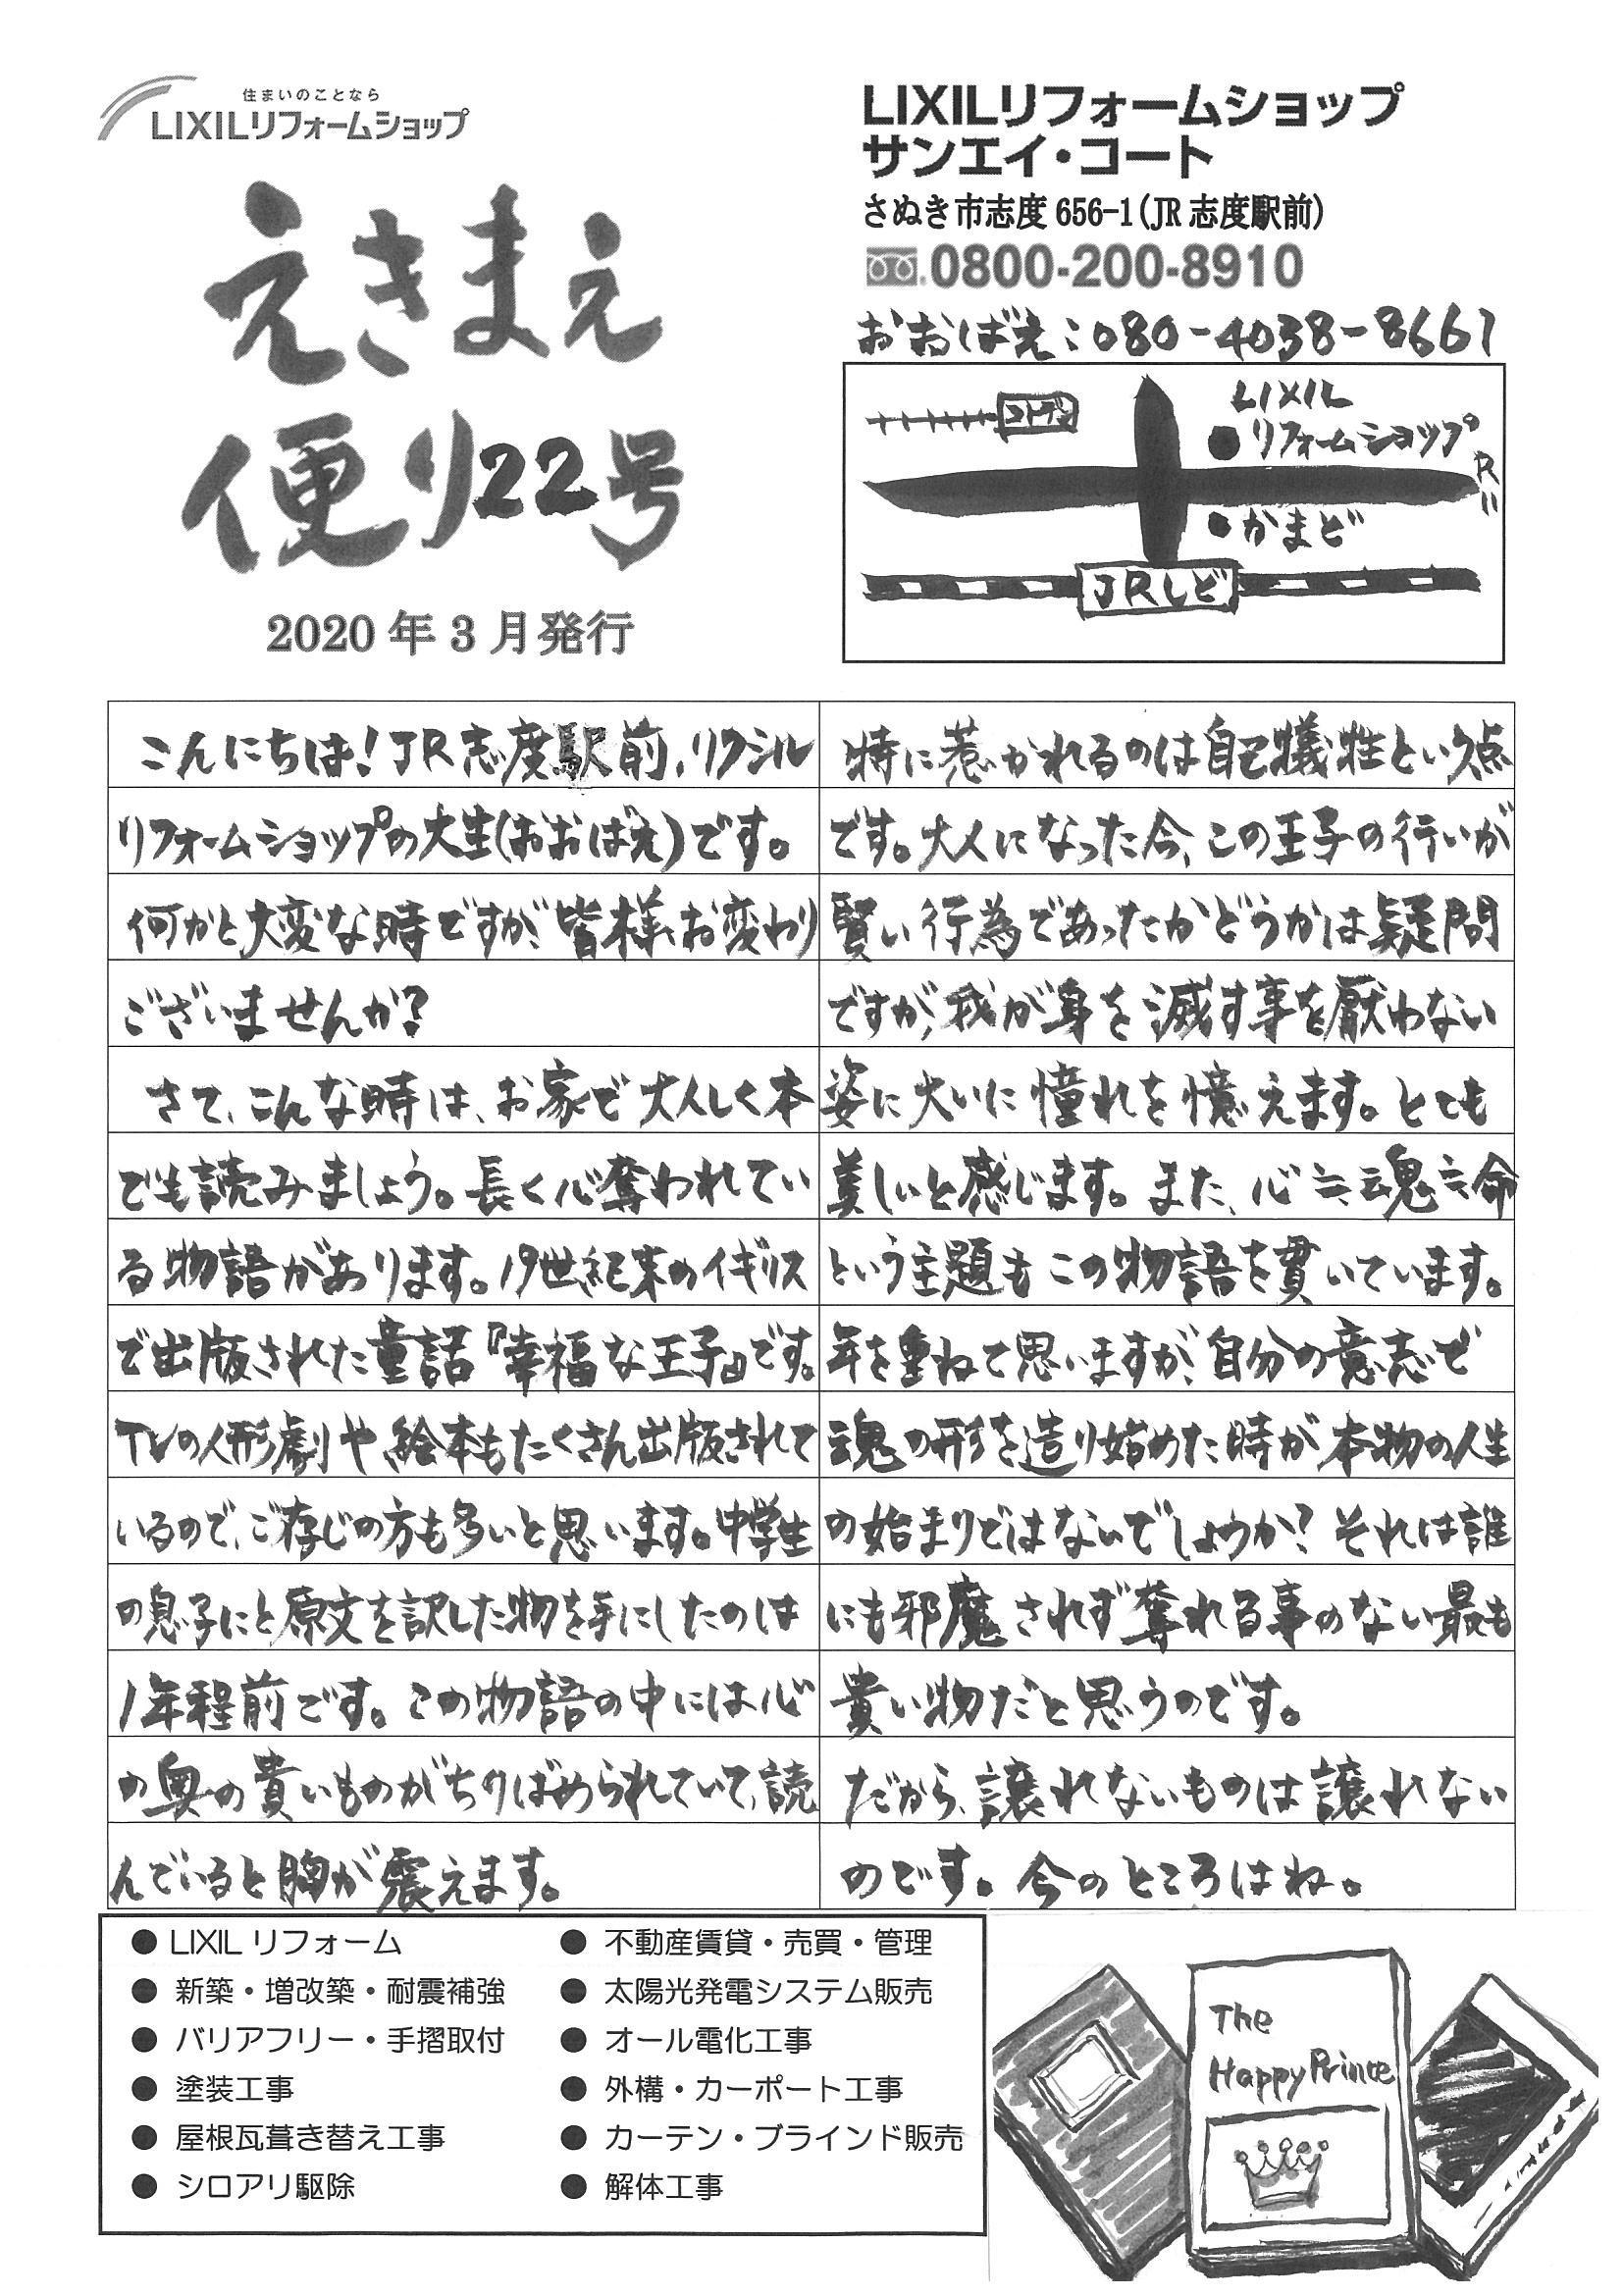 住まいのことなら
LIXILリフォームショップ
えきまえ
便り22号
2020年3月発行
LIXILリフォームショップ
サンエイ・コート
さぬき市志度656-1(JR志度駅前)
0800-200-8910
おおばえ:080-4038-8661
コトデン
LIXIL
リフォームショップ
R11
かまど
JRしど
こんにちは!JR志度駅前、リクシル
リフォームショップの大生(おおばえ)です。
何かと大変な時ですが、皆様、お変わり
ございませんか?
さて、こんな時は、お家で大人しく本
でも読みましょう。長く心奪われてい
る物語があります。19世紀末のイギリス
で出版された童話『幸福な王子』です。
TVの人形劇や絵本もたくさん出版されて
いるので、ご存じの方も多いと思います。中学生
の息子にと原文を訳した物を手にしたのは
1年程前です。この物語の中には心
の奥の貴いものがちりばめられていて、読
んでいると胸が震えます。
特に惹かれるのは自己犠牲という点
です。大人になった今、この王子の行いが
賢い行為であったかどうかは疑問
ですが、我が身を滅す事を厭わない
姿に大いに憧れを憶えます。とても
美しいと感じます。また、心≒魂≒命
という主題もこの物語を貫いています。
年を重ねて思いますが、自分の意志で
魂の形を造り始めた時が本物の人生
の始まりではないでしょうか?それは誰
にも邪魔されず奪れる事のない最も
貴い物だと思うのです。
だから、譲れないものは譲れない
のです。今のところはね。
● LIXILリフォーム
● 新築・増改築・耐震補強
● バリアフリー・手摺取付
● 塗装工事
● 屋根瓦葺き替え工事
● シロアリ駆除
● 不動産賃貸・売買・管理
● 太陽光発電システム販売
● オール電化工事
● 外構・カーポート工事
● カーテン・ブラインド販売
● 解体工事
The
Happy Prince